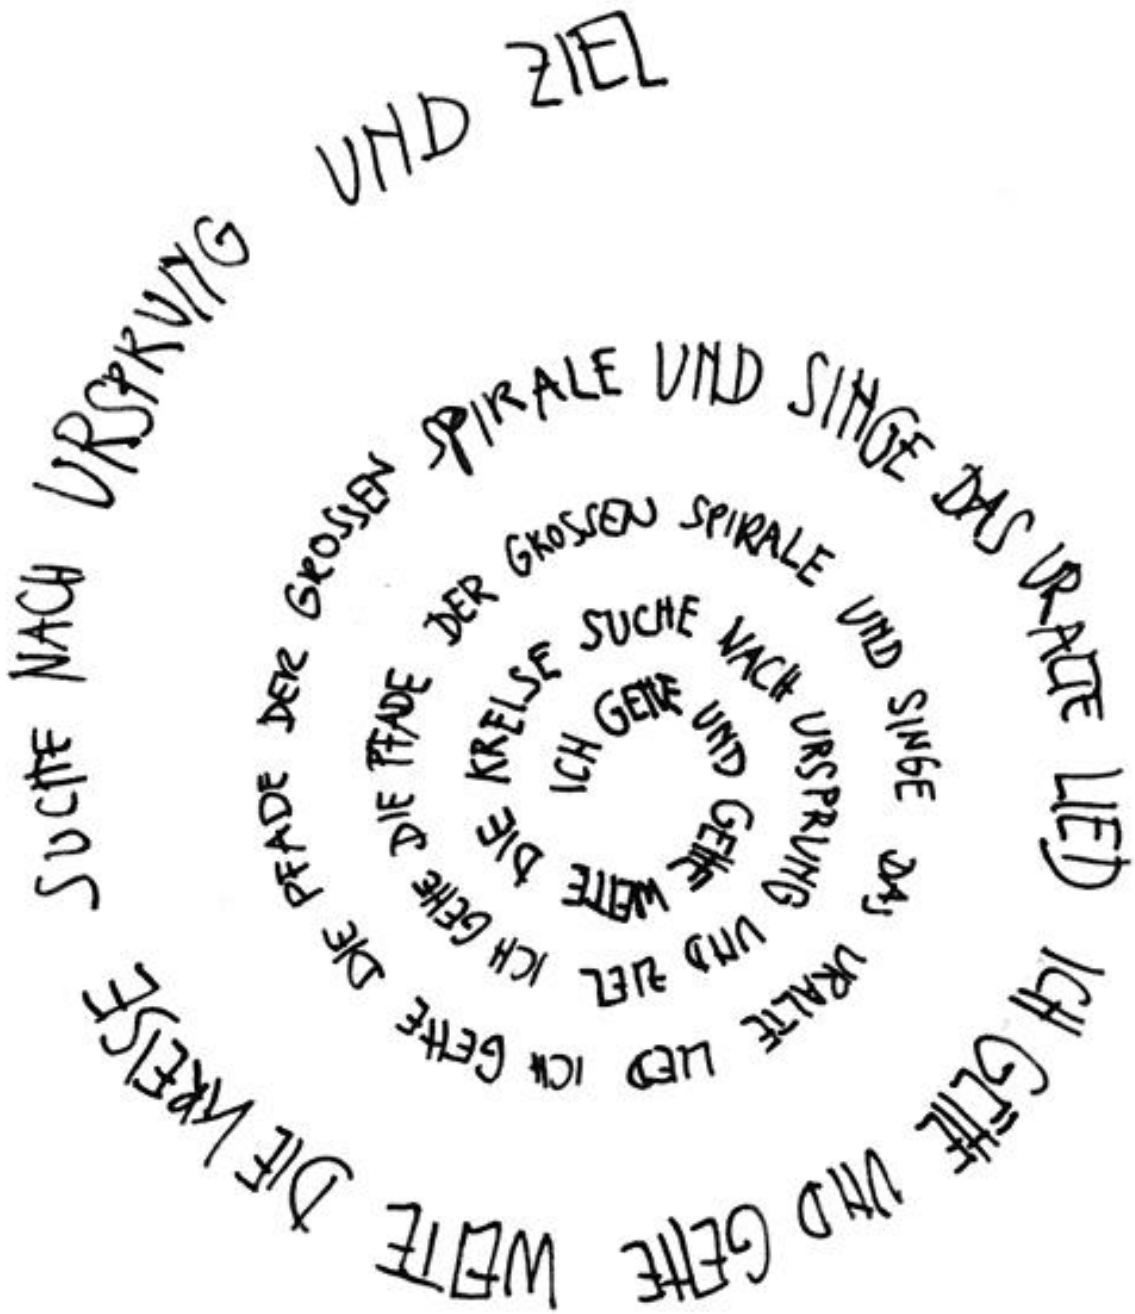 ICH GEHE UND GEHE WEITE DIE KREISE SUCHE NACH URSPRUNG UND ZIEL ICH GEHE DIE PFADE DER GROSSEN SPIRALE UND SINGE DAS URALTE LIED ICH GEHE DIE PFADE DER GROSSEN SPIRALE UND SINGE DAS URALTE LIED ICH GEHE UND GEHE WEITE DIE KREISE SUCHE NACH URSPRUNG UND ZIEL